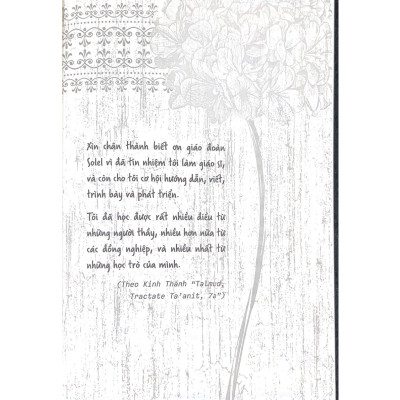 Xin chân thành biết ơn giáo đoàn
Solel vì đã tín nhiệm tôi làm giáo sĩ,
và còn cho tôi cơ hội hướng dẫn, viết,
trình bày và phát triển.
Tôi đã học được rất nhiều điều từ
những người thầy, nhiều hơn nữa từ
các đồng nghiệp, và nhiều nhất từ
những học trò của mình.
(Theo Kinh Thánh "Talmud,
Tractate Ta'anit, 7a")